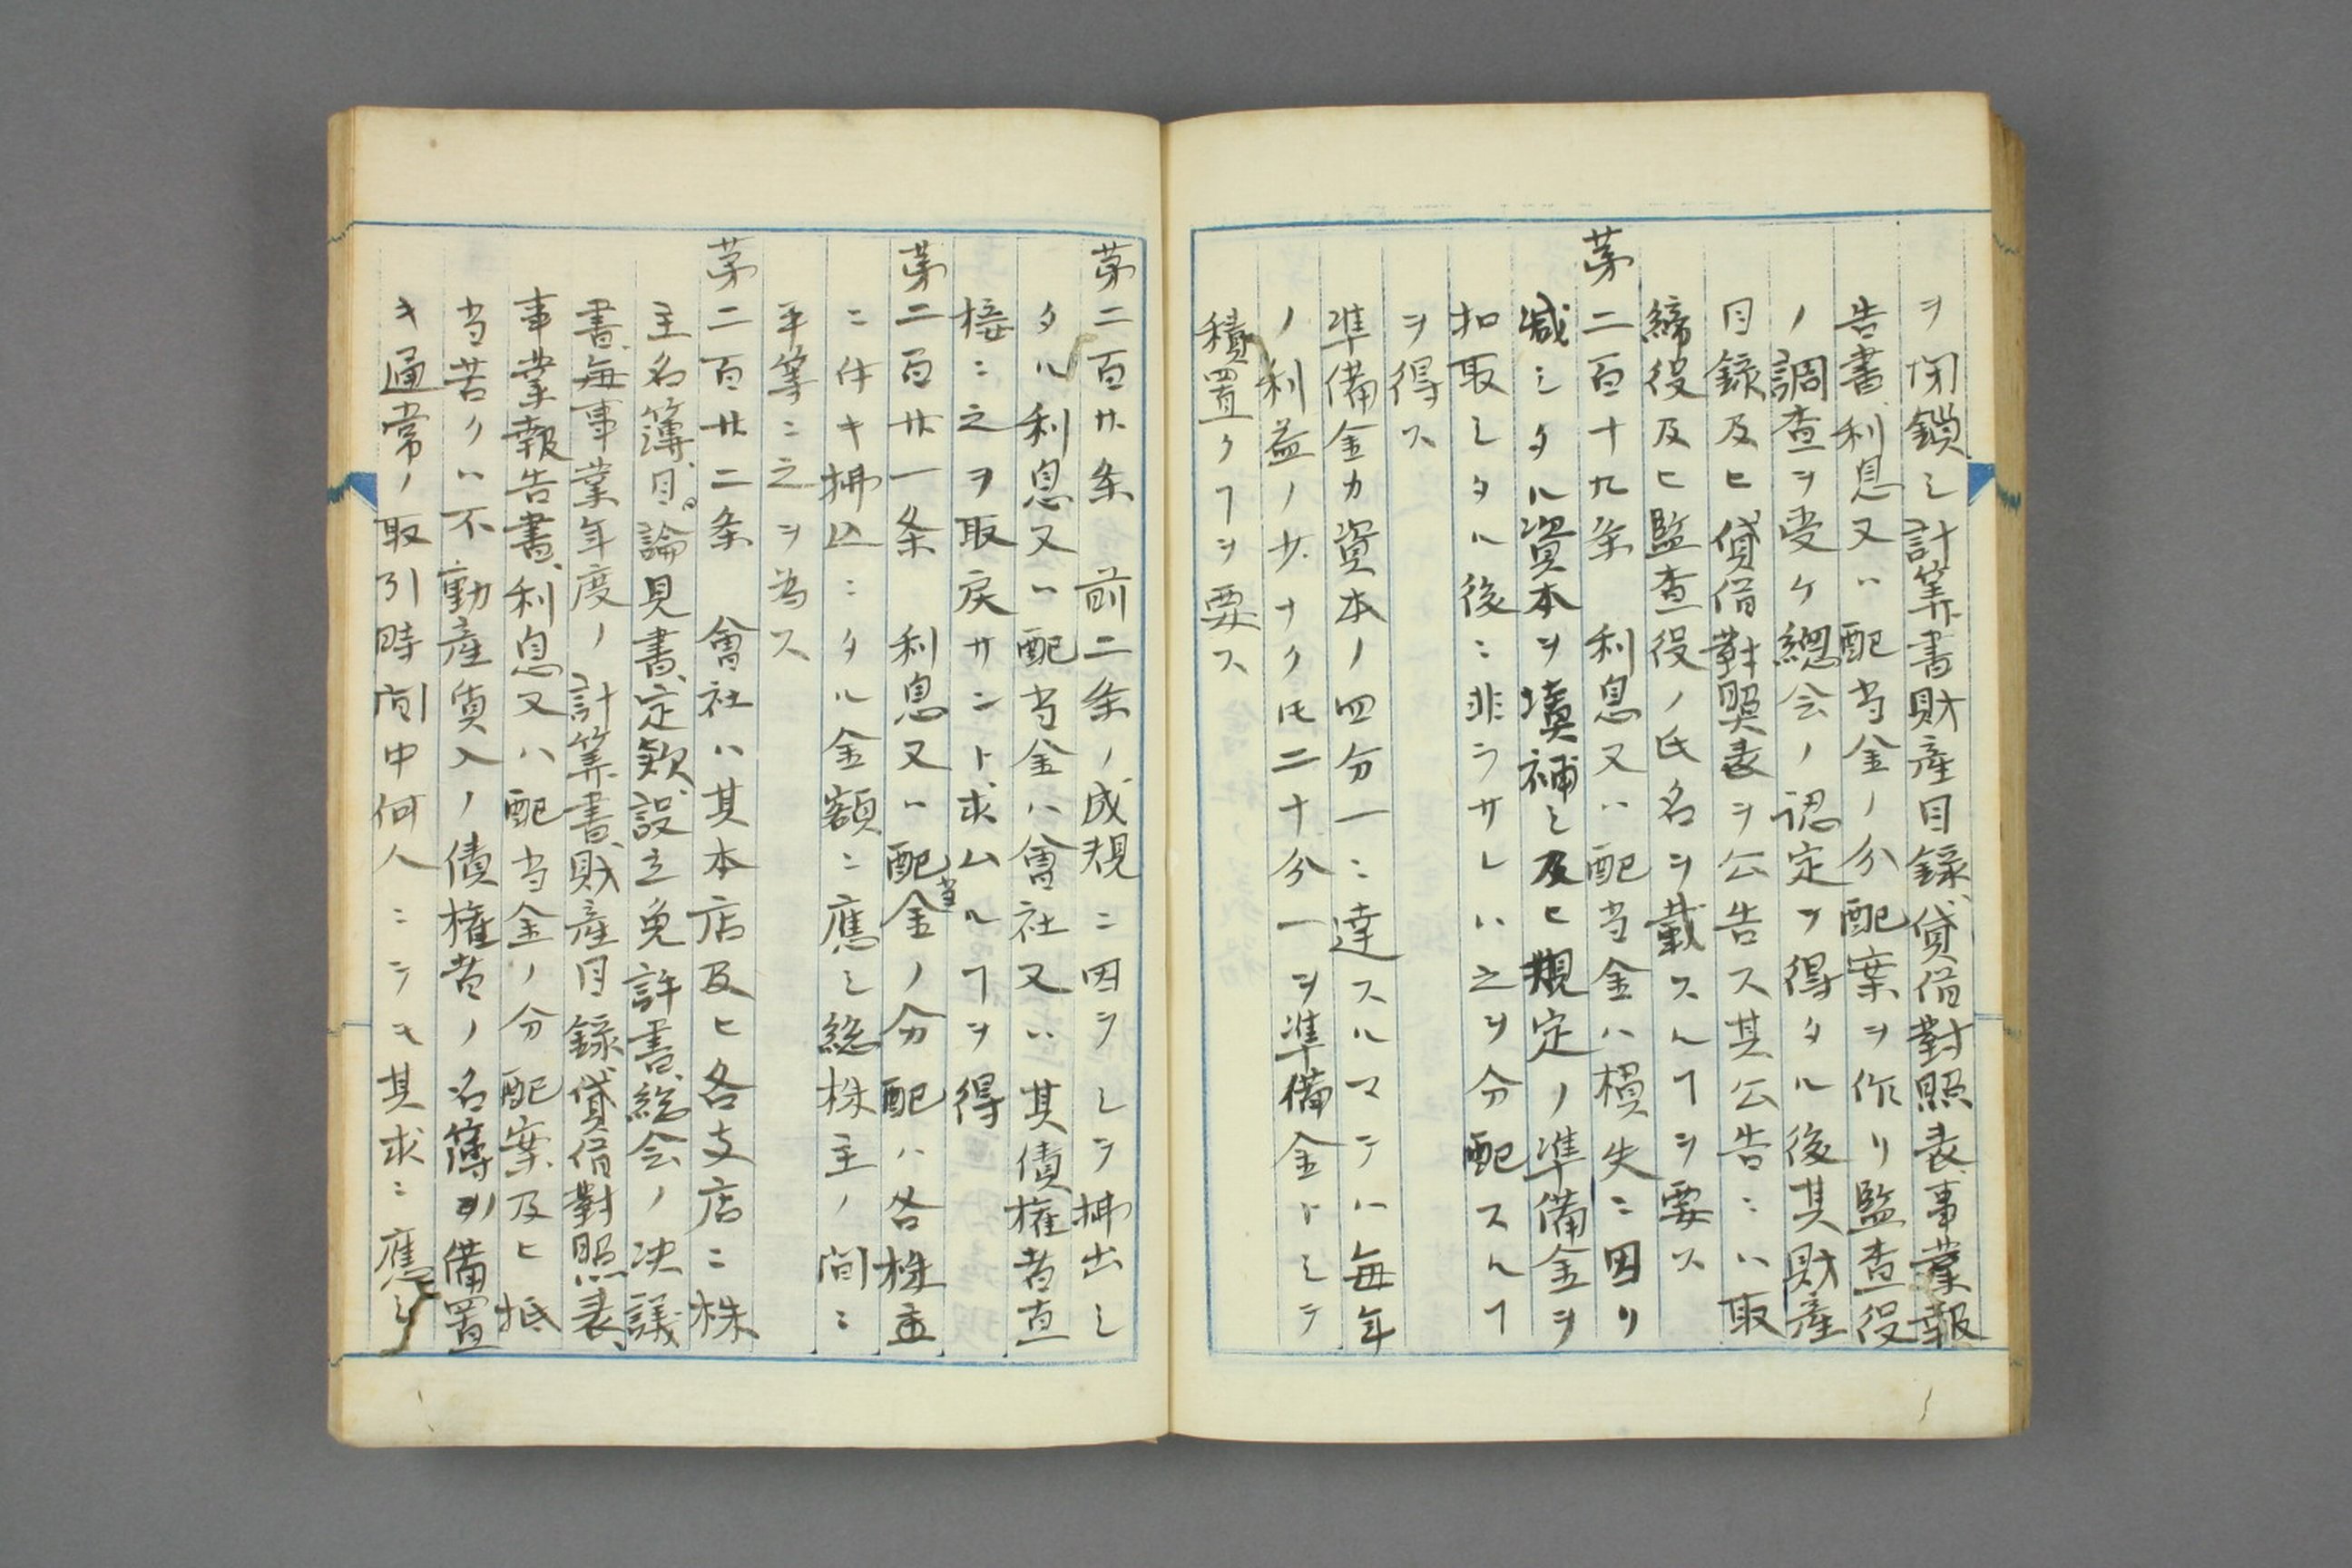 ヲ閉鎖シ計算書財産目録、貸借對照表、事業報
告書、利息又ハ配当金ノ分配案ヲ作リ監査役
ノ調査ヲ受ケ總会ノ認定ヲ得タル後其財産
目録及ヒ貸借對照表ヲ公告ス其公告ニハ取
締役及ヒ監査役ノ氏名ヲ載スルヿヲ要ス
苐二百十九条 利息又ハ配当金ハ損失ニ因リ
減シタル資本ヲ塡補シ及ヒ規定ノ準備金ヲ
扣取シタル後ニ非ラサレハ之ヲ分配スルヿ
ヲ得ス
準備金カ資本ノ四分一ニ達スルマテハ毎年
ノ利益ノ少ナクトモ二十分一ヲ準備金トシテ
積置クヿヲ要ス
苐二百廿条 前二条ノ成規ニ因ラシテ拂出シ
タル利息又ハ配当金ハ會社又ハ其債権者直
接ニ之ヲ取戻サント求ムルヿヲ得
苐二百廿一条 利息又ハ配当金ノ分配ハ各株主
ニ付キ拂込ミタル金額ニ應シ総株主ノ間ニ
平等ニ之ヲ為ス
苐二百廿二条 會社ハ其本店及ヒ各支店ニ株
主名簿、目論見書、定款、設立免許書、総会ノ决議
書、毎事業年度ノ計算書、財産目録、貸借對照表、
事業報告書、利息又ハ配当金ノ分配案及ヒ抵
当若クハ不動産質入ノ債権者ノ名簿ヲ備置
キ通常ノ取引時間中何人ニテモ其求ニ應シ